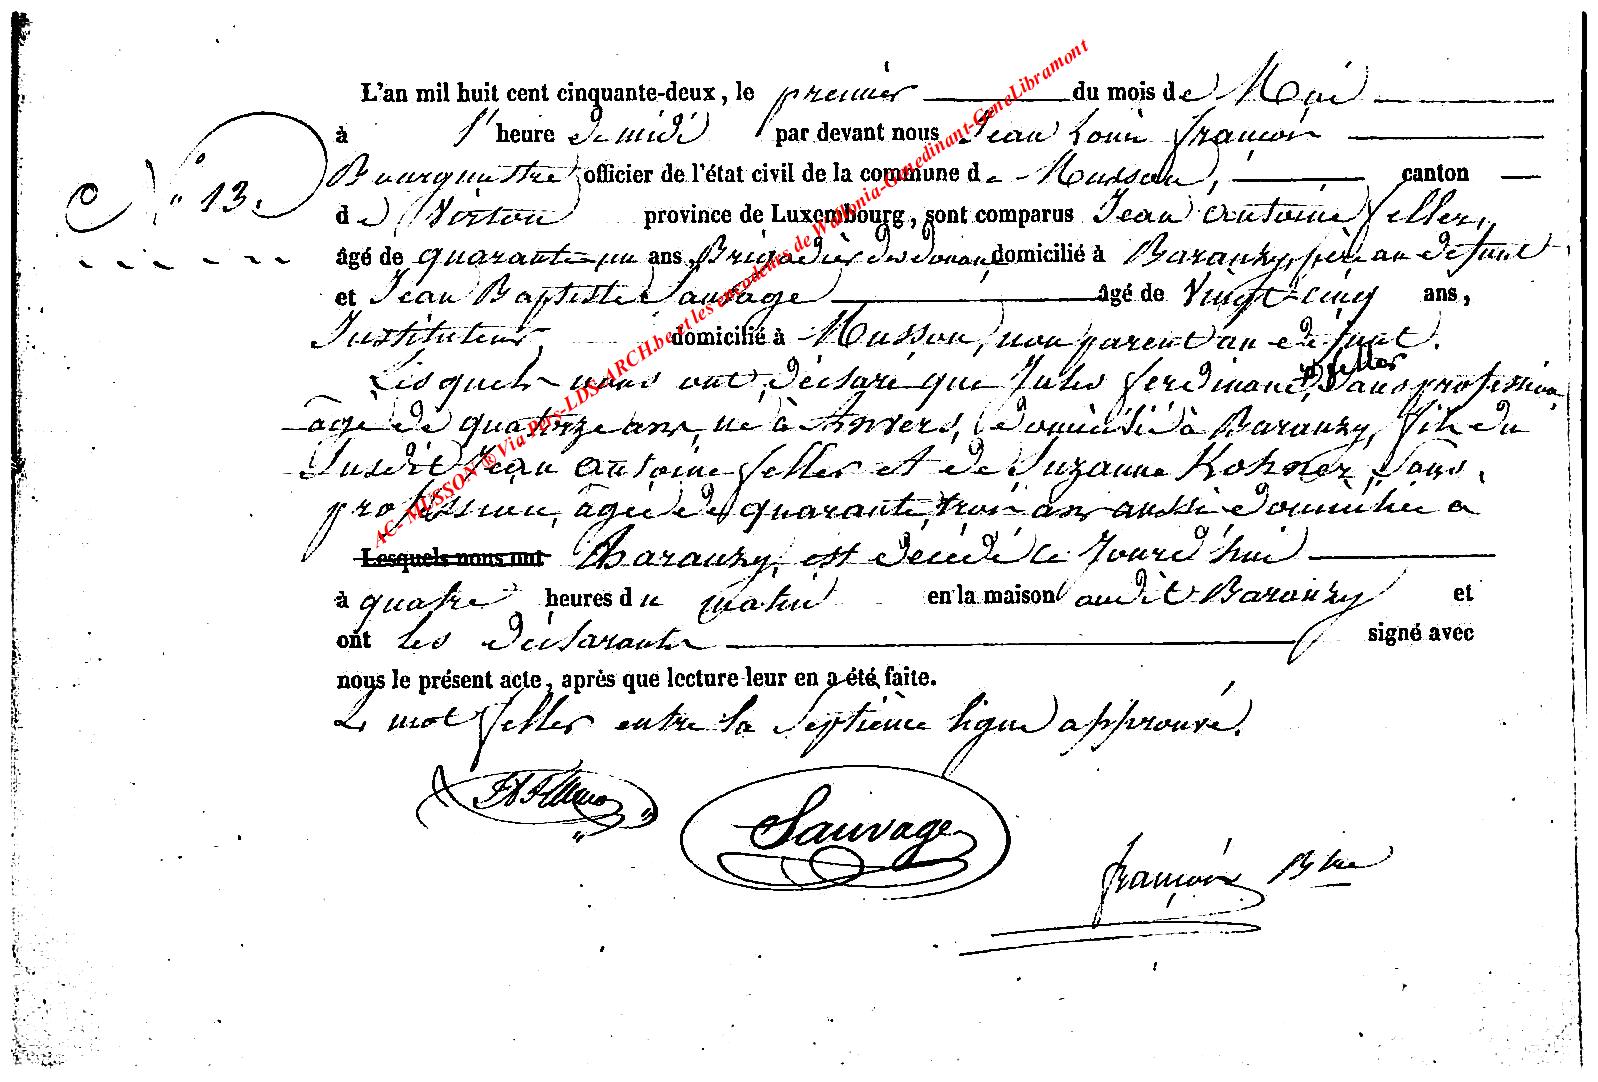 L'an mil huit cent cinquante-deux, le premier du mois de Mai
à l'heure de midi par devant nous Jean Louis françois
Bourgmestre officier de l'état civil de la commune de Musson, canton
N° 13.
de Virton province de Luxembourg, sont comparus Jean Antoine feller,
âgé de quarante un ans, Brigadier des douanes domicilié à Baranzy, père au défunt
et Jean Baptiste Sauvage âgé de Vingt-cinq ans,
Instituteur domicilié à Musson, non parent au défunt.
feller
Lesquels nous ont déclaré que Jules ferdinand, Sans profession
âgé de quatorze ans, né à Anvers, domicilié à Baranzy, fils du
Susdit Jean Antoine feller et de Suzanne Kohner, Sans
profession, âgée de quarante trois ans aussi domiciliée à
Lesquels nous ont Baranzy, est décédé ce Jourd'hui
à quatre heures du matin en la maison audit Baranzy et
ont les déclarants signé avec
nous le présent acte, après que lecture leur en a été faite.
Le mot feller entre la Septième ligne approuvé.
Sauvage
françois Bstre
AC- MUSSON ® Via Pers-LDS-ARCH.be et les encodeurs de Wallonia-Genedinant-GeneLibramont